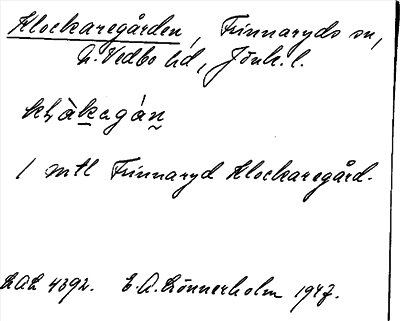 Klockaregården, Finnaryds sn,
N. Vedbo hd, Jönk. l.
klὰkagán
1 mtl Finnaryd Klockaregård.
LAL 4392. E. A. Lönnerholm 1947.